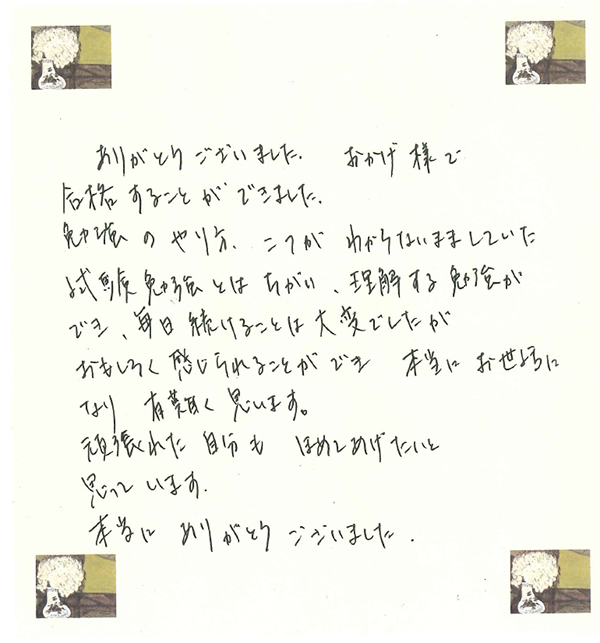 ありがとうございました. おかげ様で
合格することができました.
勉強のやり方、こつがわからないまましていた
試験勉強とはちがい、理解する勉強が
でき、毎日続けることは大変でしたが
おもしろく感じられることができ 本当にお世話に
なり 有難く思います。
頑張れた自分も ほめてあげたいと
思っています.
本当に ありがとうございました.